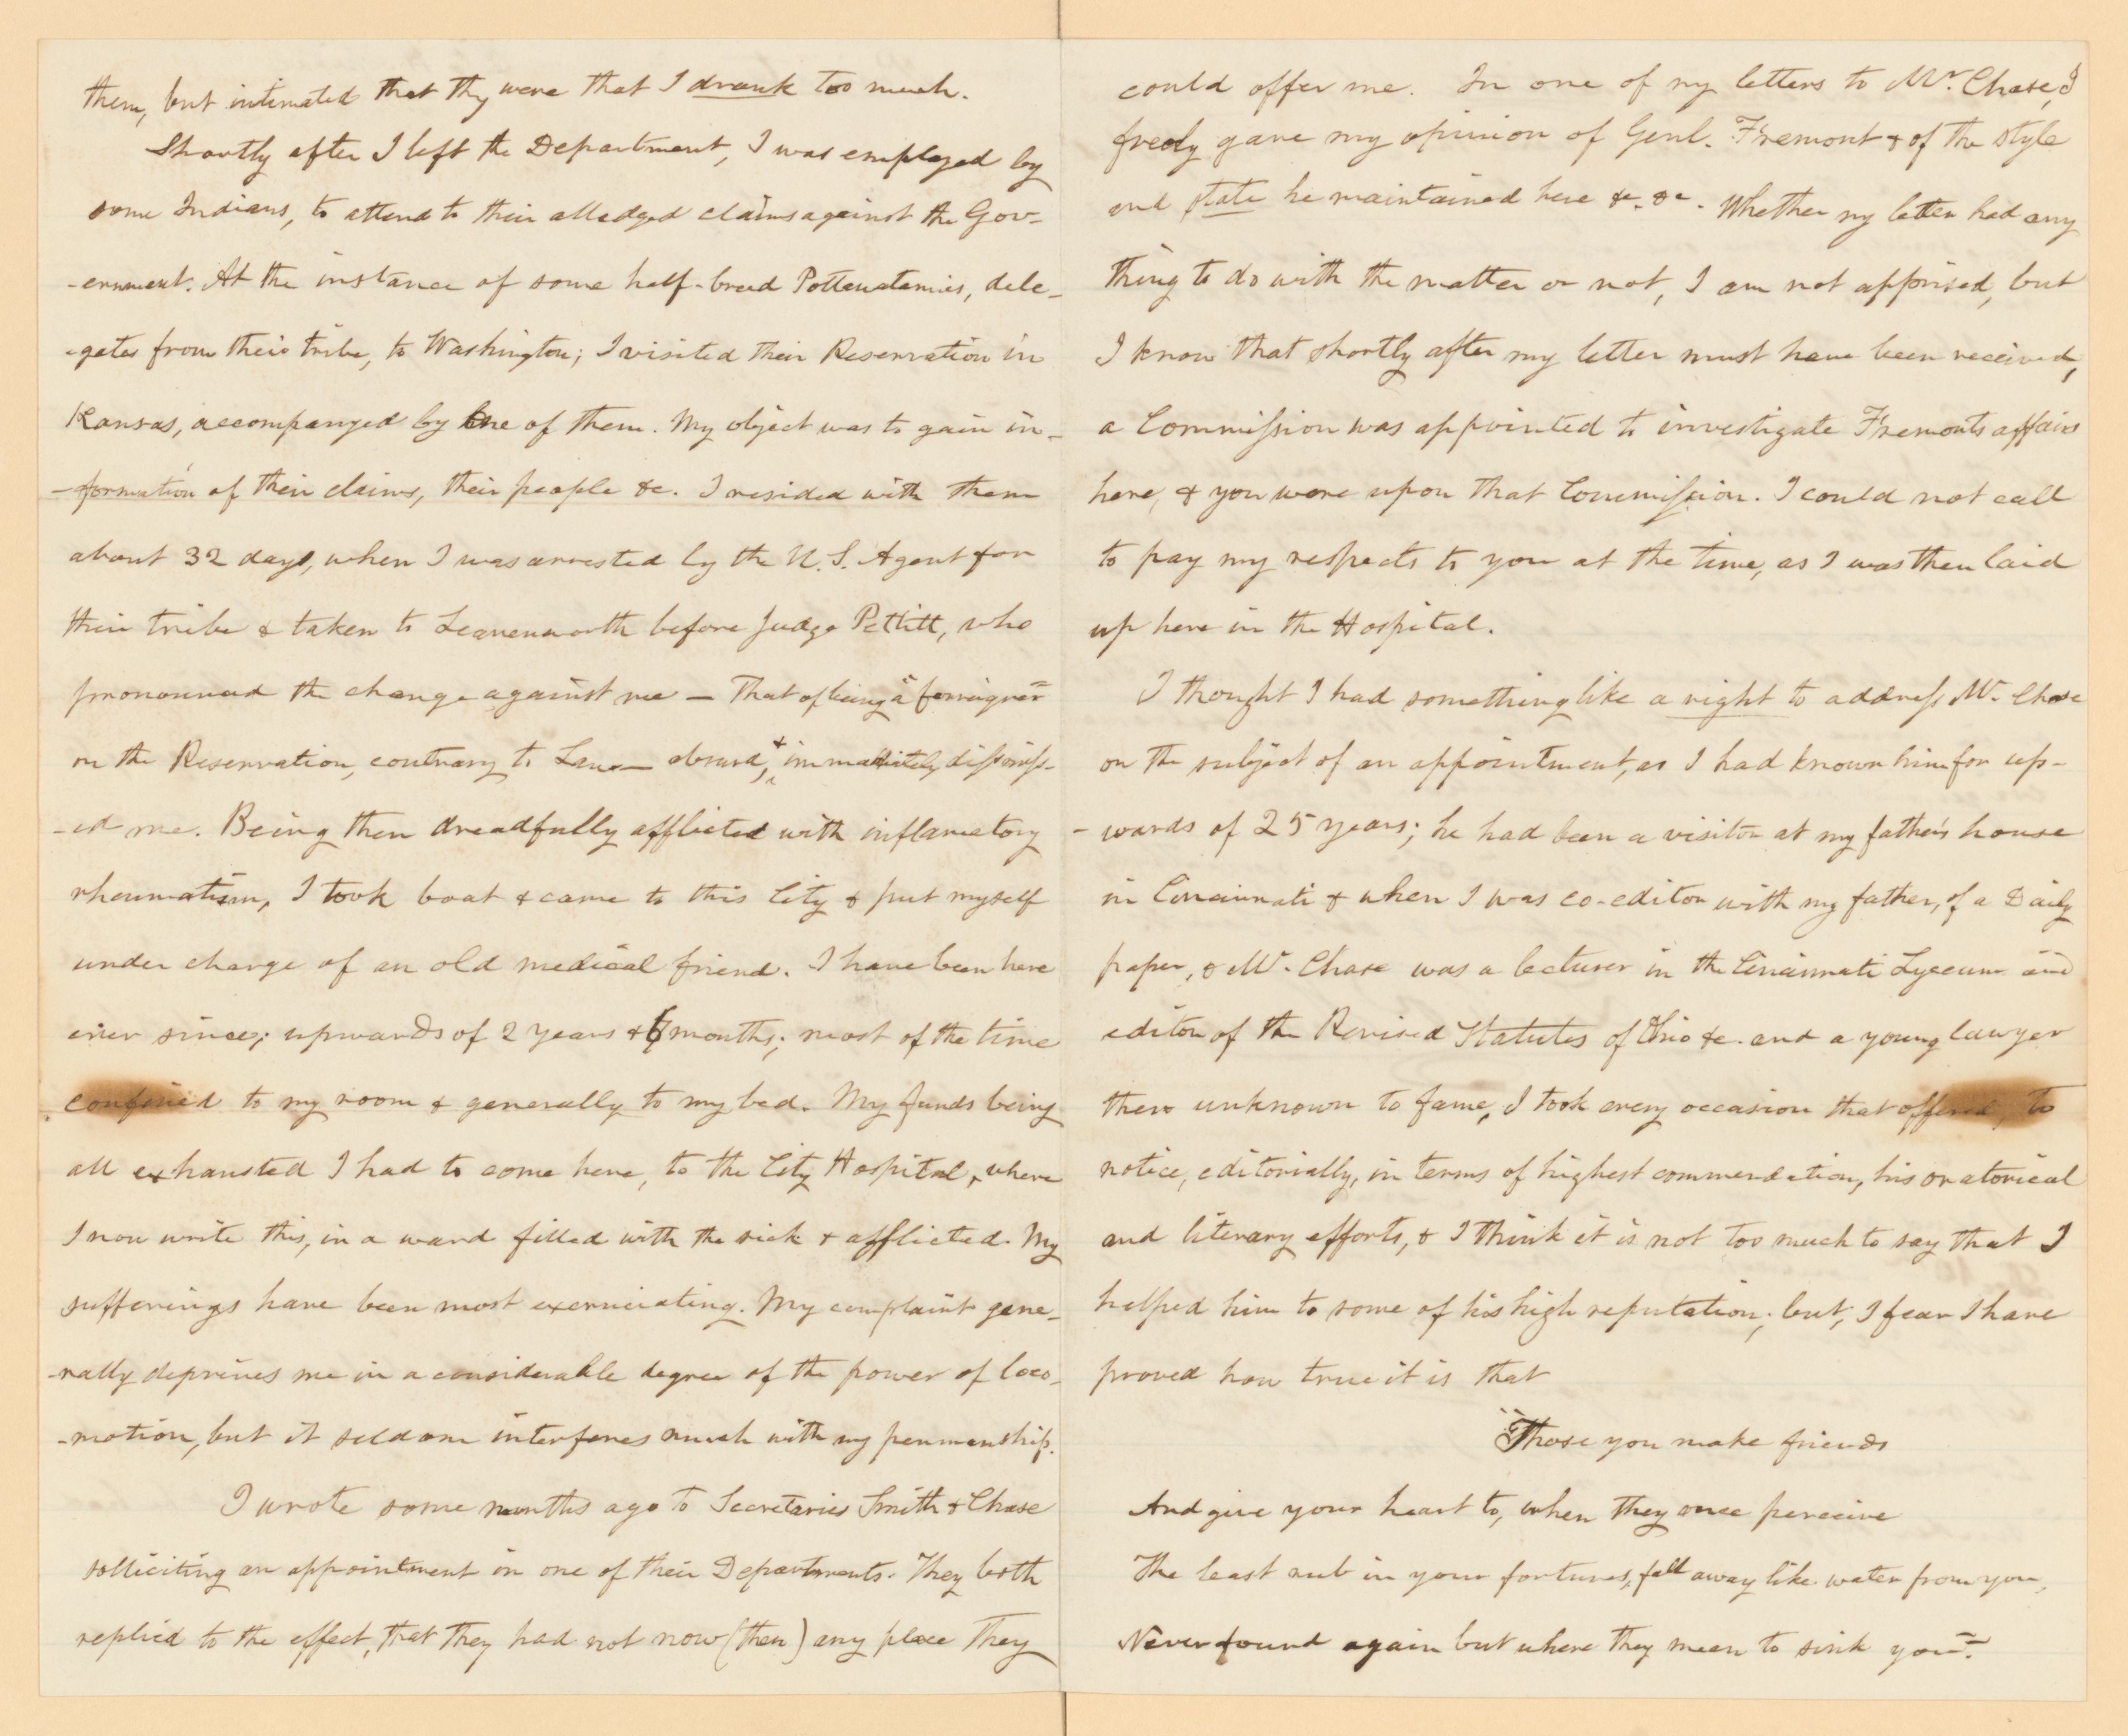 them, but intimated that thy were that I drank too much.
Shortly after I left the Department, I was employed by
some Indians, to attend to their alledged claims against the Gov-
-ernment. At the instance of some half-breed Pottawatamies, dele-
-gates from their tribe, to Washington; I visited their Reservation in
Kansas, accompanyed by one of them. My object was to gain in-
-formation of their claims, their people &c. I resided with them
about 32 days, when I was arrested by the U.S. Agent for
their tribe & taken to Leavenworth before Judge Pettitt, who
pronounced the charge against me — that of being a "forreigner"
on the Reservation, contrary to Law — absurd, & immediately dismiss-
-ed me. Being then dreadfully afflicted with inflamatory
rheumatism, I took boat & came to this City & put myself
under charge of an old medical friend. I have been here
ever since; upwards of 2 years & 6 months; most of the time
confined to my room & generally to my bed. My funds being
all exhausted I had to come here, to the City Hospital, where
I now write this, in a ward filled with the sick & afflicted. My
sufferings have been most excruciating. My complaint gene-
-rally deprives me in a considerable degree of the power of loco-
-motion, but it seldom interferes much with my penmanship.
I wrote some months ago to Secretaries Smith & Chase
solliciting an appointment in one of their Departments. They both
replied to the effect, that they had not now (then) any place they
could offer me. In one of my letters to Mr. Chase, I
freely gave my opinion of Genl. Fremont & of the style
and state he maintained here &c. &c. Whether my letter had any
thing to do with the matter or not, I am not apprised, but
I know that shortly after my letter must have been received,
a Commission was appointed to investigate Fremonts affairs
here, & you were upon that Commission. I could not call
to pay my respects to you at the time, as I was then laid
up here in the Hospital.
I thought I had something like a right to address Mr. Chase
on the subject of an appointment, as I had known him for up-
-wards of 25 years; he had been a visitor at my father's house
in Cincinnati & when I was co-editor with my father, of a Daily
paper, & Mr. Chase was a lecturer in the Cincinnati Lyceum and
editor of the Revised Statutes of Ohio &c. and a young lawyer
then unknown to fame, I took every occasion that offered, to
notice, editorially, in terms of highest commendation, his oratorical
and literary efforts, & I think it is not too much to say that I
helped him to some of his high reputation; but, I fear I have
proved how true it is that
"Those you make friends
And give your heart to, when they once perceive
The least rub in your fortunes, fall away like water from you,
Never found again but where they mean to sink you".